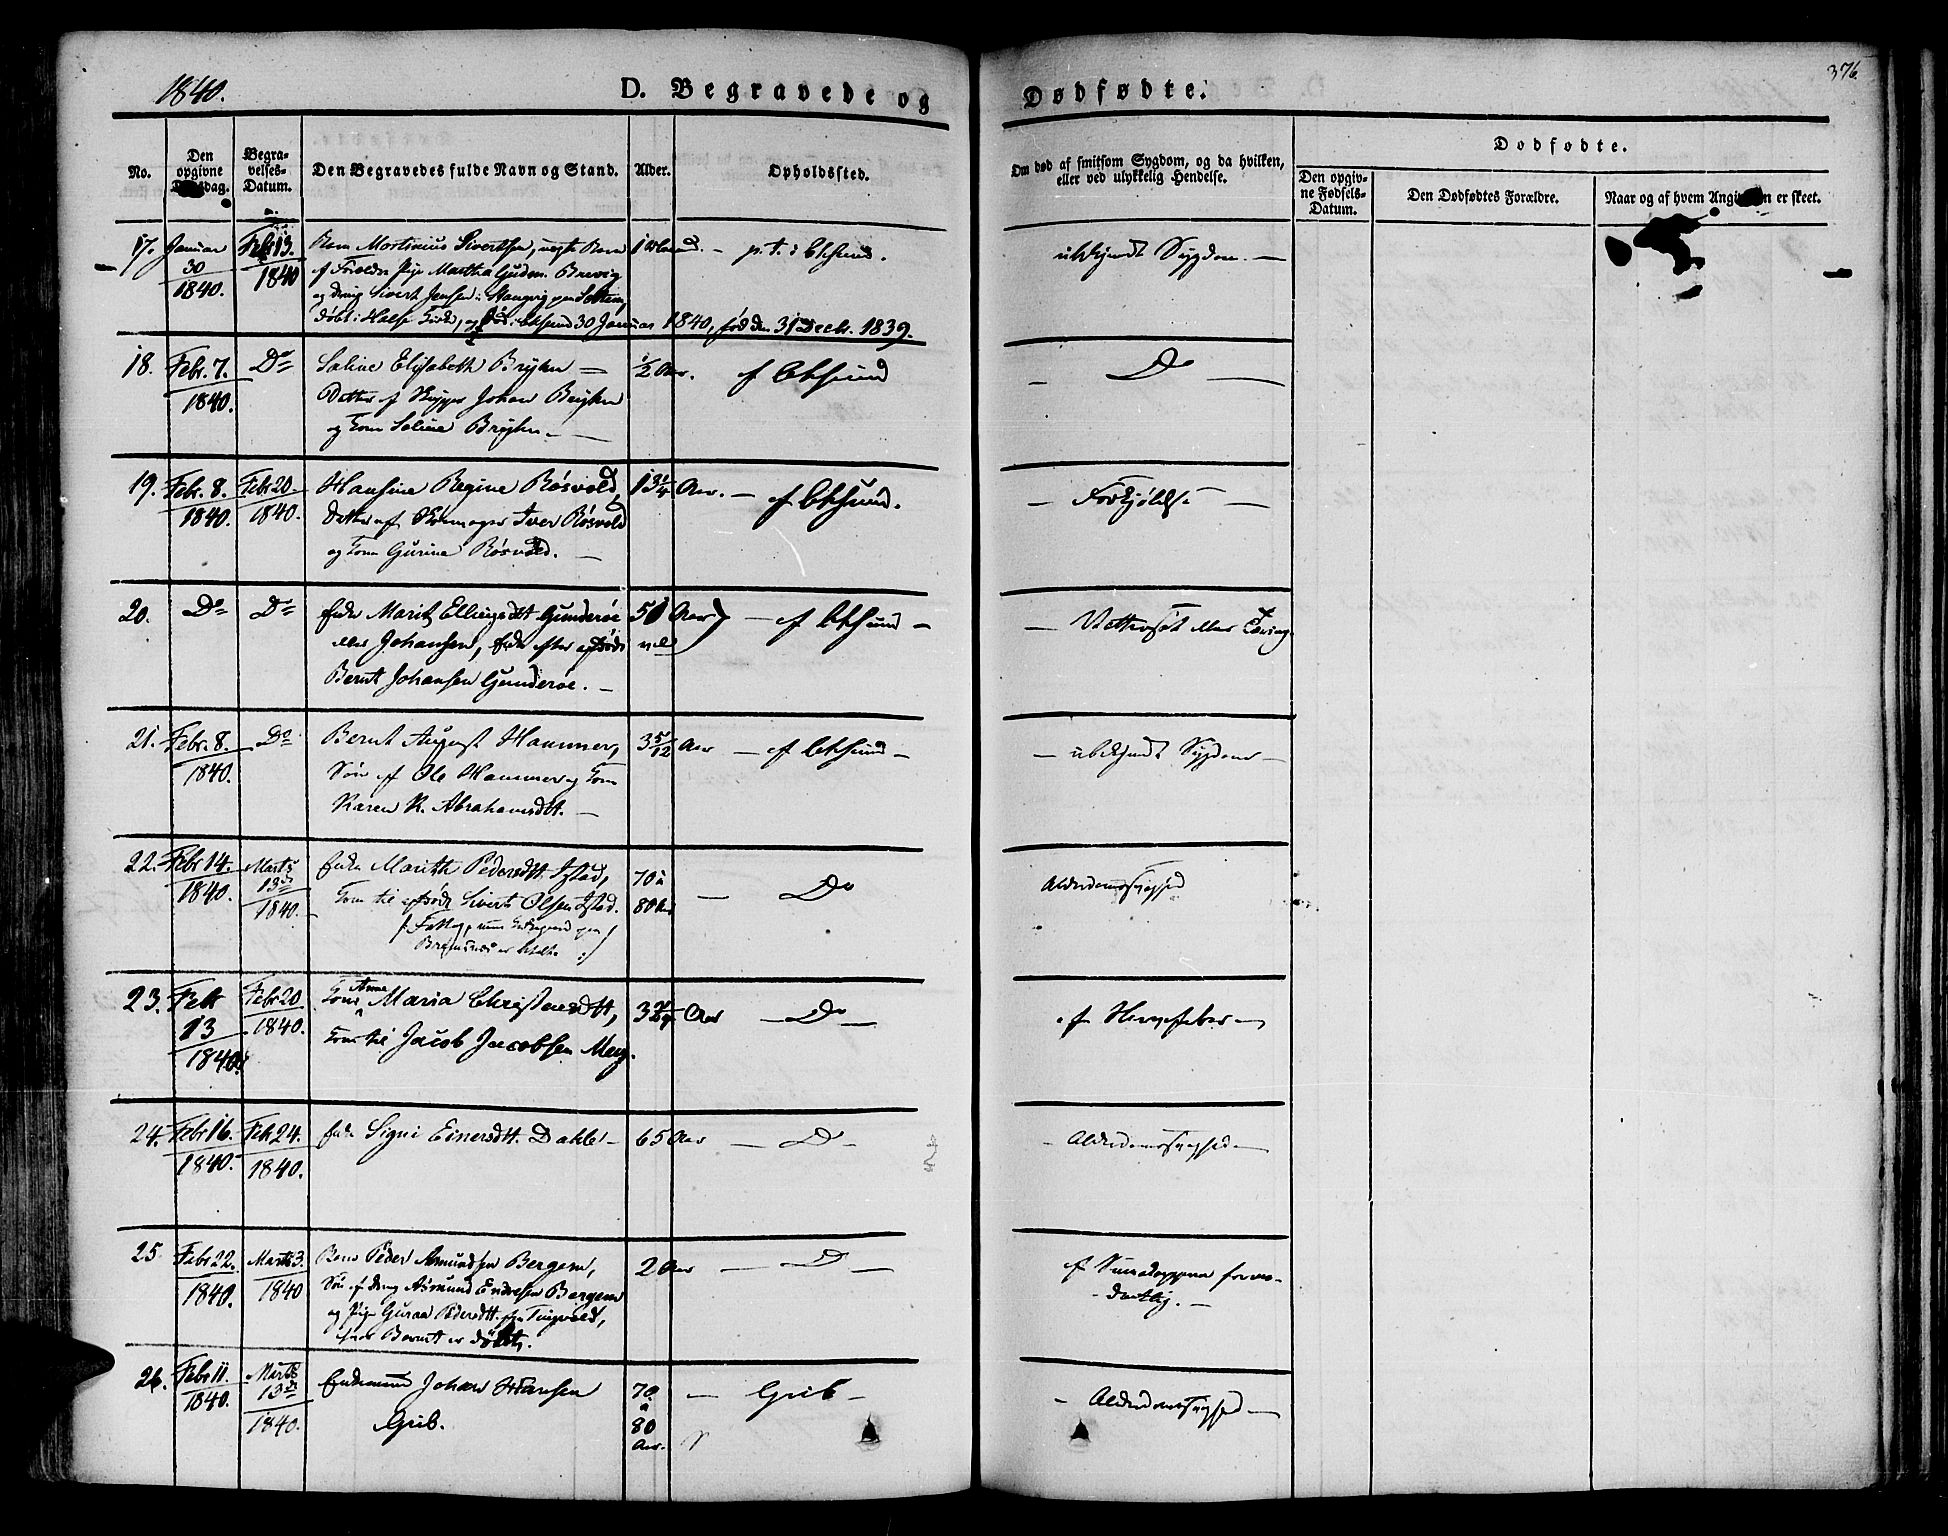 1840.
D. Begravede og
Dødfødte.
376
No.
Den opgivne Dødsdag.
Begravelses-Datum.
Den Begravedes fulde Navn og Stand.
Alder.
Opholdssted.
Om død af smitsom Sygdom, og da hvilken,
eller ved ulykkelig Hendelse.
Dødfødte.
Den opgiv-
ne Fødsels-
Datum.
Den Dødfødtes Forældre.
Naar og af hvem Angivelsen er skeet.
17. Januar 30 1840. Febr 13. 1840
Barn Mortinius Sivertsen, uægte Barn
af Pige Martha Gudm. Brevig
og Dreng Sivert Jensen
døbt i Halse Kirke, og død i Chrsund 30 Januar 1840, fød den 31 Decb. 1839.
1 Maaned. - p. t. i Chrsund.
ubekjendt Sygdom. -
18. Febr. 7. 1840. Do
Saline Elisabeth Bryhn
Datter af Skipper Johan Bryhn
og Kone Saline Bryhn. -
1/2 Aar. af Chrsund
- Do -
19. Febr. 8. 1840. Febr 20. 1840.
Hansine Regine Rösvold,
Datter af Skomager Iver Rösvold
og Kone Gurine Rösvold. -
13 1/4 Aar. - af Chrsund.
- Forkjölelse -
20. Do Do
Enke Marit Ellingsdtt Gunderöe
eller Johansen, Enke efter afdøde
Bernt Johansen Gunderöe. -
50 Aar - af Chrsund -
- Vattersot eller
21. Febr. 8. 1840. Do
Bernt August Hammer,
Sön af Ole Hammer og Kone
Karen K. Abrahamsdtt. -
3 5/12 Aar - af Chrsund -
- ubekjendt Sygdom -
22. Febr 14. 1840. Marts 13de 1840.
Enke Marith Pedersdtt Istad,
Kone til afdöde Sivert Olsen Istad.
70 à 80 Aar - Do
Alderdomssvaghed
23. Febr 13 1840. Febr 20 1840.
Kone Anne Maria Christensdtt,
Kone til Jacob Jacobsen
Aar - Do -
af Nervefeber -
24. Febr 16. 1840. Feb. 24. 1840.
Enke Signi Einersdtt. Dahle -
65 Aar - Do -
- Alderdomssvaghed -
25. Febr 22. 1840. Marts 3. 1840
Barn Peder Asmundsen Bergem,
Sön af Dreng Asmund Endresen Bergem
og Pige Guraa Pedersdtt. fra Tingvold,
hvor Barnet er döbt.
2 Aar - Do -
af formo-
dentlig. -
26. Febr 11. 1840. Marts 13de 1840.
Enkemand Johan Hansen
Grib.
70 à 80 Aar.
- Grib -
- Alderdomssvaghed -